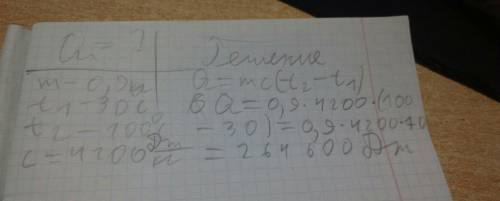 Q = ? Решение
m – 0,9 кг Q = mc(t₂ – t₁)
t₁ – 30 c Q = 0,9 · 4200 · (100
t₂ – 100° – 30) = 0,9 · 4200 · 70
c = 4200 Дж/кг = 264 600 Дж